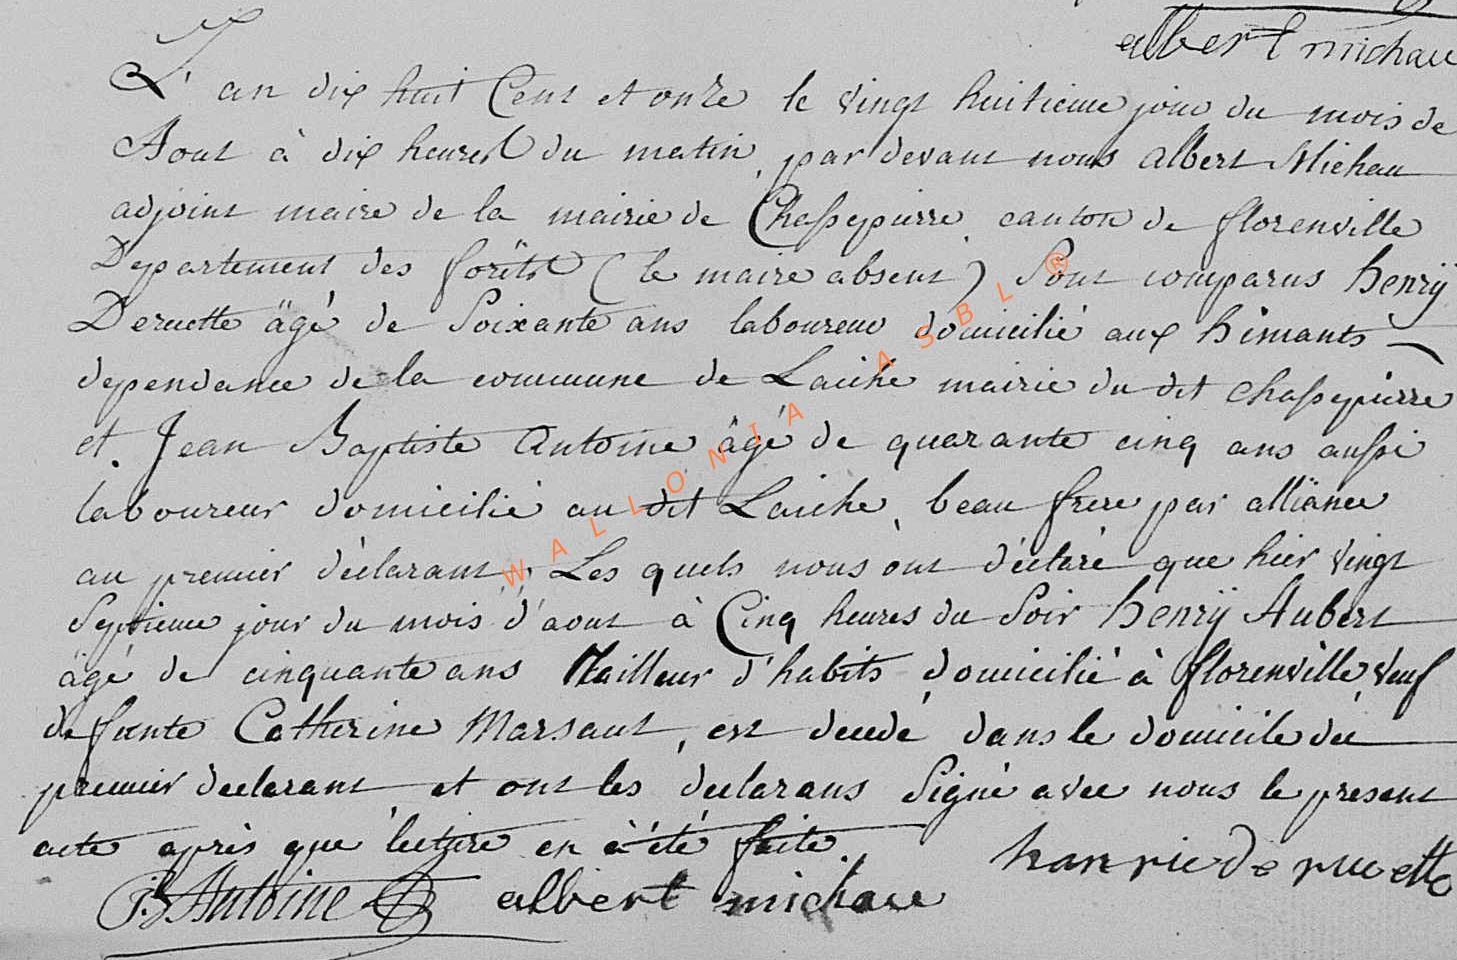 albert michau
L'an dix huit Cent et onze le vingt huitieme jour du mois de
Aout à dix heures du matin, par devant nous Albert Michau
adjoint maire de la mairie de Chassepierre canton de florenville
Departement des forêts (le maire absent) Sont comparus henrÿ
Deruette âgé de Soixante ans laboureur domicilié aux himants
dependance de la commune de Laiche mairie du dit Chassepierre
et Jean Baptiste Antoine âgé de quarante cinq ans aussi
laboureur domicilié au dit Laiche, beau frere par alliance
au premier déclarant. Les quels nous ont déclaré que hier vingt
Septieme jour du mois d'aout à Cinq heures du Soir henrÿ Aubert
âgé de cinquante ans Tailleur d'habits domicilié à florenville, veuf
de feue Catherine Marsaut, est decedé dans le domicile du
premier declarant et ont les declarans Signé avec nous le present
acte après que lecture en à été faite.
hanrie de ruette
JB Antoine albert michau
WALLONIA ASBL ®